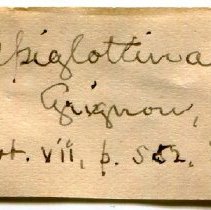 piglottina
Grignon,
t. vii, p. 552.